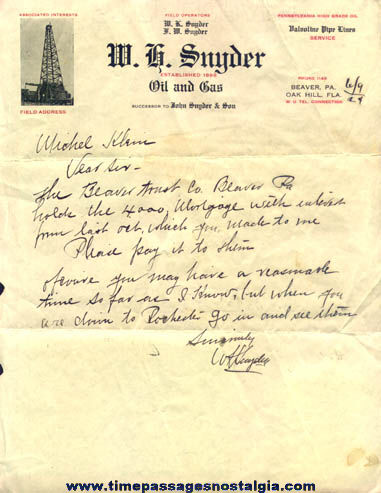 ASSOCIATED INTERESTS
FIELD ADDRESS
FIELD OPERATORS
W. K. Snyder
F. W. Snyder
W. H. Snyder
ESTABLISHED
Oil and Gas
SUCCESSOR TO John Snyder & Son
PENNSYLVANIA HIGH GRADE OIL
Valvoline Pipe Lines
SERVICE
PHONE 1149
BEAVER, PA.
OAK HILL, FLA.
W. U. TEL. CONNECTION
6/9
29
Michel Klein
Dear Sir -
The Beaver Trust Co. Beaver Pa
holds the 4000, Mortgage with interest
from last Oct, which you made to me
Please pay it to them
of course you may have a reasonable
time so far as I know, but when you
are down to Rochester go in and see them
Sincerely
WHSnyder
www.timepassagesnostalgia.com